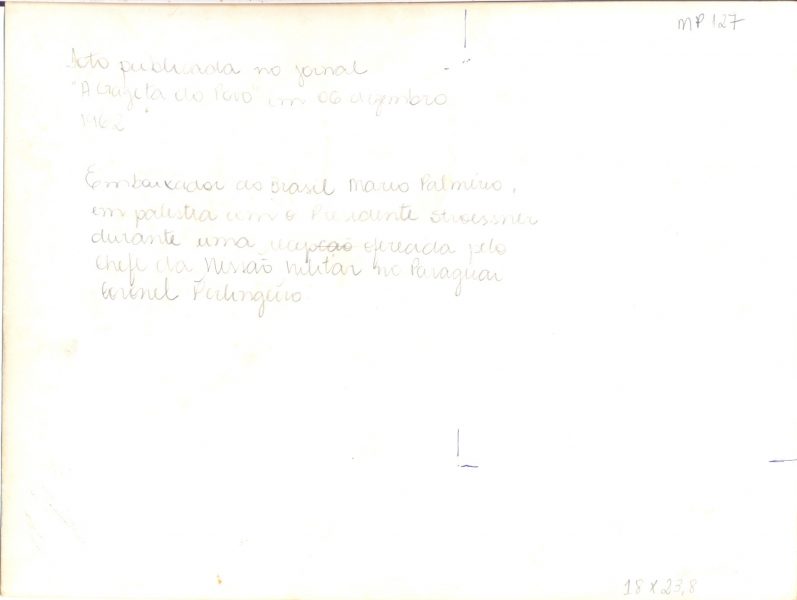 MP 127
Foto publicada no jornal
"A Gazeta do Povo" em 06 dezembro
1962
Embaixador do Brasil Mario Palmério,
em palestra com o Presidente Stroessner
durante uma recepção oferecida pelo
Chefe da Missão Militar no Paraguai
Coronel Perlingeiro
18 x 23,8